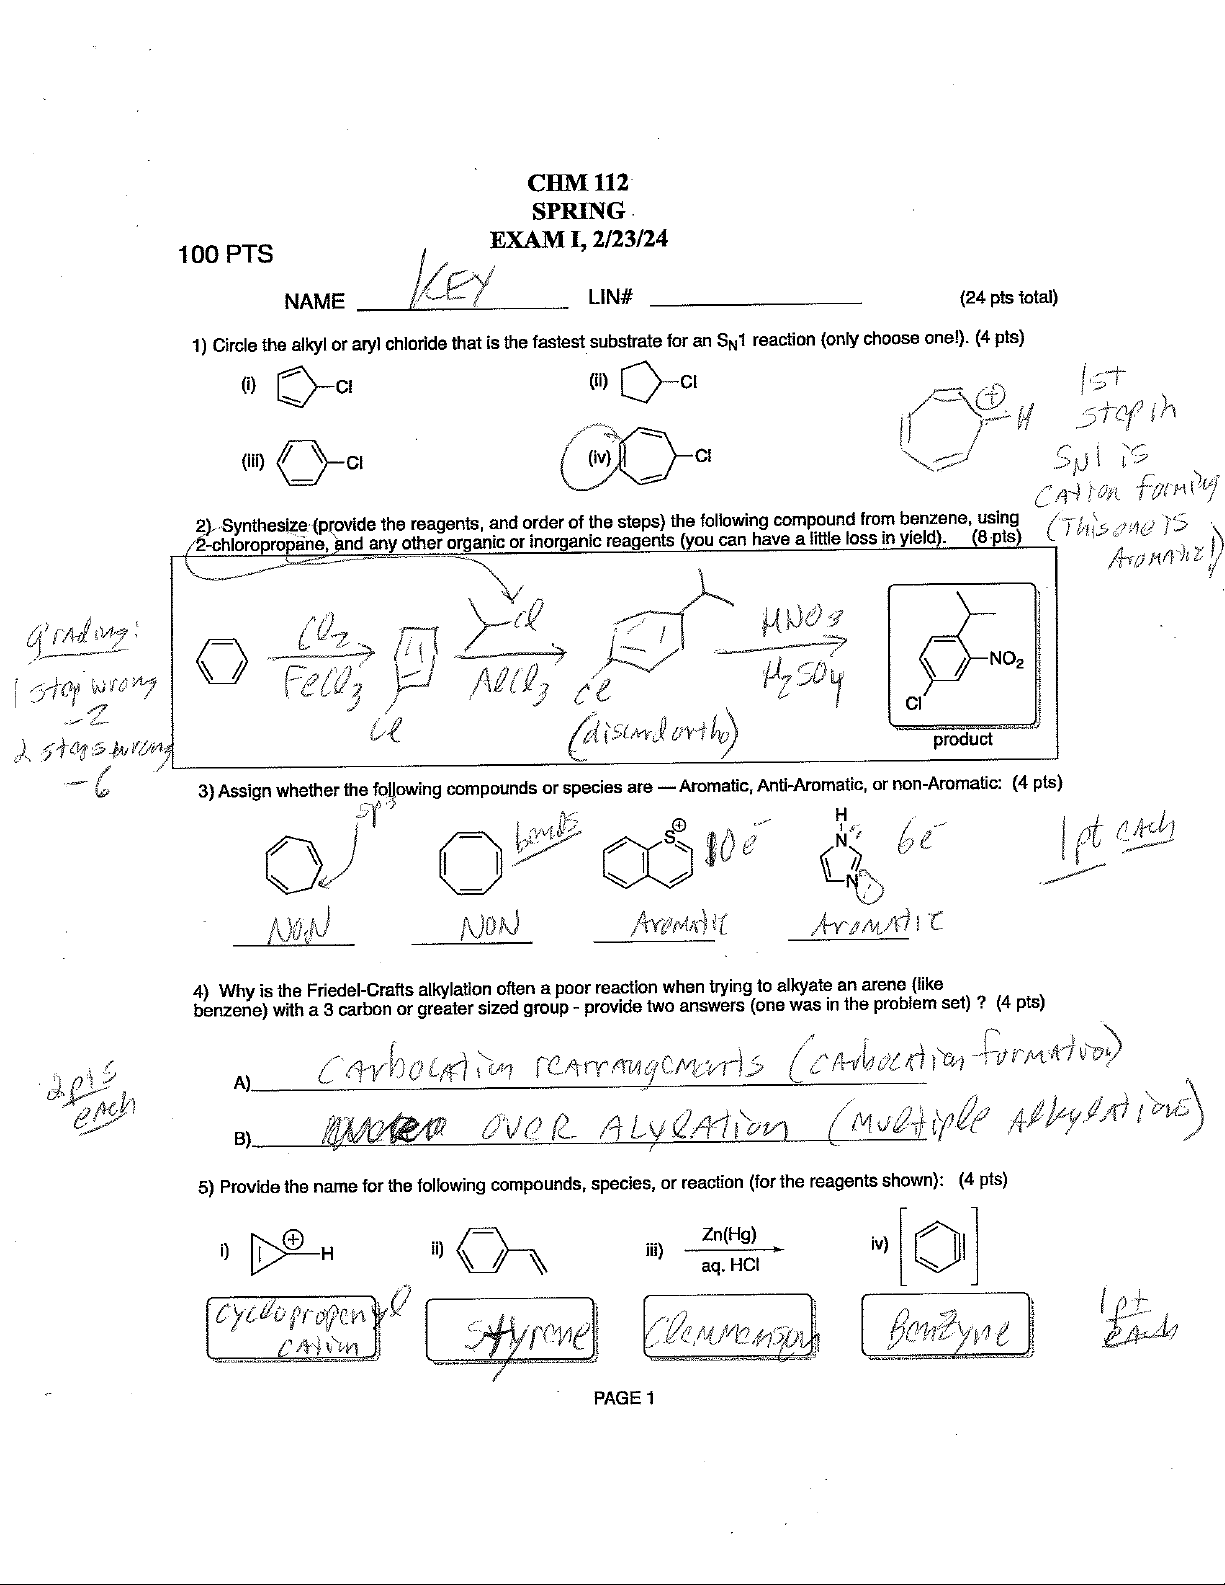 CHM 112
SPRING
EXAM I, 2/23/24
100 PTS
NAME KEY LIN# (24 pts total)
1) Circle the alkyl or aryl chloride that is the fastest substrate for an SN1 reaction (only choose one!). (4 pts)
(i) Cl
(ii) Cl
(iii) Cl
(iv) Cl
+ H
1st
step in
SN1 is
CAtion forming
(This one is
AromAtic!)
2) Synthesize (provide the reagents, and order of the steps) the following compound from benzene, using
2-chloropropane, and any other organic or inorganic reagents (you can have a little loss in yield). (8 pts)
grAding:
1 step wrong
-2
2 steps wrong
-6
Cl2
FeCl3
Cl
Cl
AlCl3
Cl
(discard ortho)
HNO3
H2SO4
NO2
Cl
product
3) Assign whether the following compounds or species are — Aromatic, Anti-Aromatic, or non-Aromatic: (4 pts)
sp3
bends
S+
10 e-
H
N
N
6e-
1 pt eAch
NON
NON
AromAtic
AromAtic
4) Why is the Friedel-Crafts alkylation often a poor reaction when trying to alkyate an arene (like
benzene) with a 3 carbon or greater sized group - provide two answers (one was in the problem set) ? (4 pts)
2 pts
eAch
A) CArbocAtion reArrAngements (cArbocAtion formAtion)
B) OVER ALylAtion (Multiple AlkylAtions)
5) Provide the name for the following compounds, species, or reaction (for the reagents shown): (4 pts)
i) + H
ii)
iii) Zn(Hg)
aq. HCl
iv)
cyclopropenyl
cAtion
Styrene
Clemmenson
Benzyne
1 pt
eAch
PAGE 1